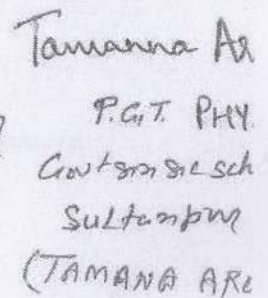 Tamanna Ar
P.G.T. PHY.
Govt sr sec sch
Sultanpur
(TAMANA ARC